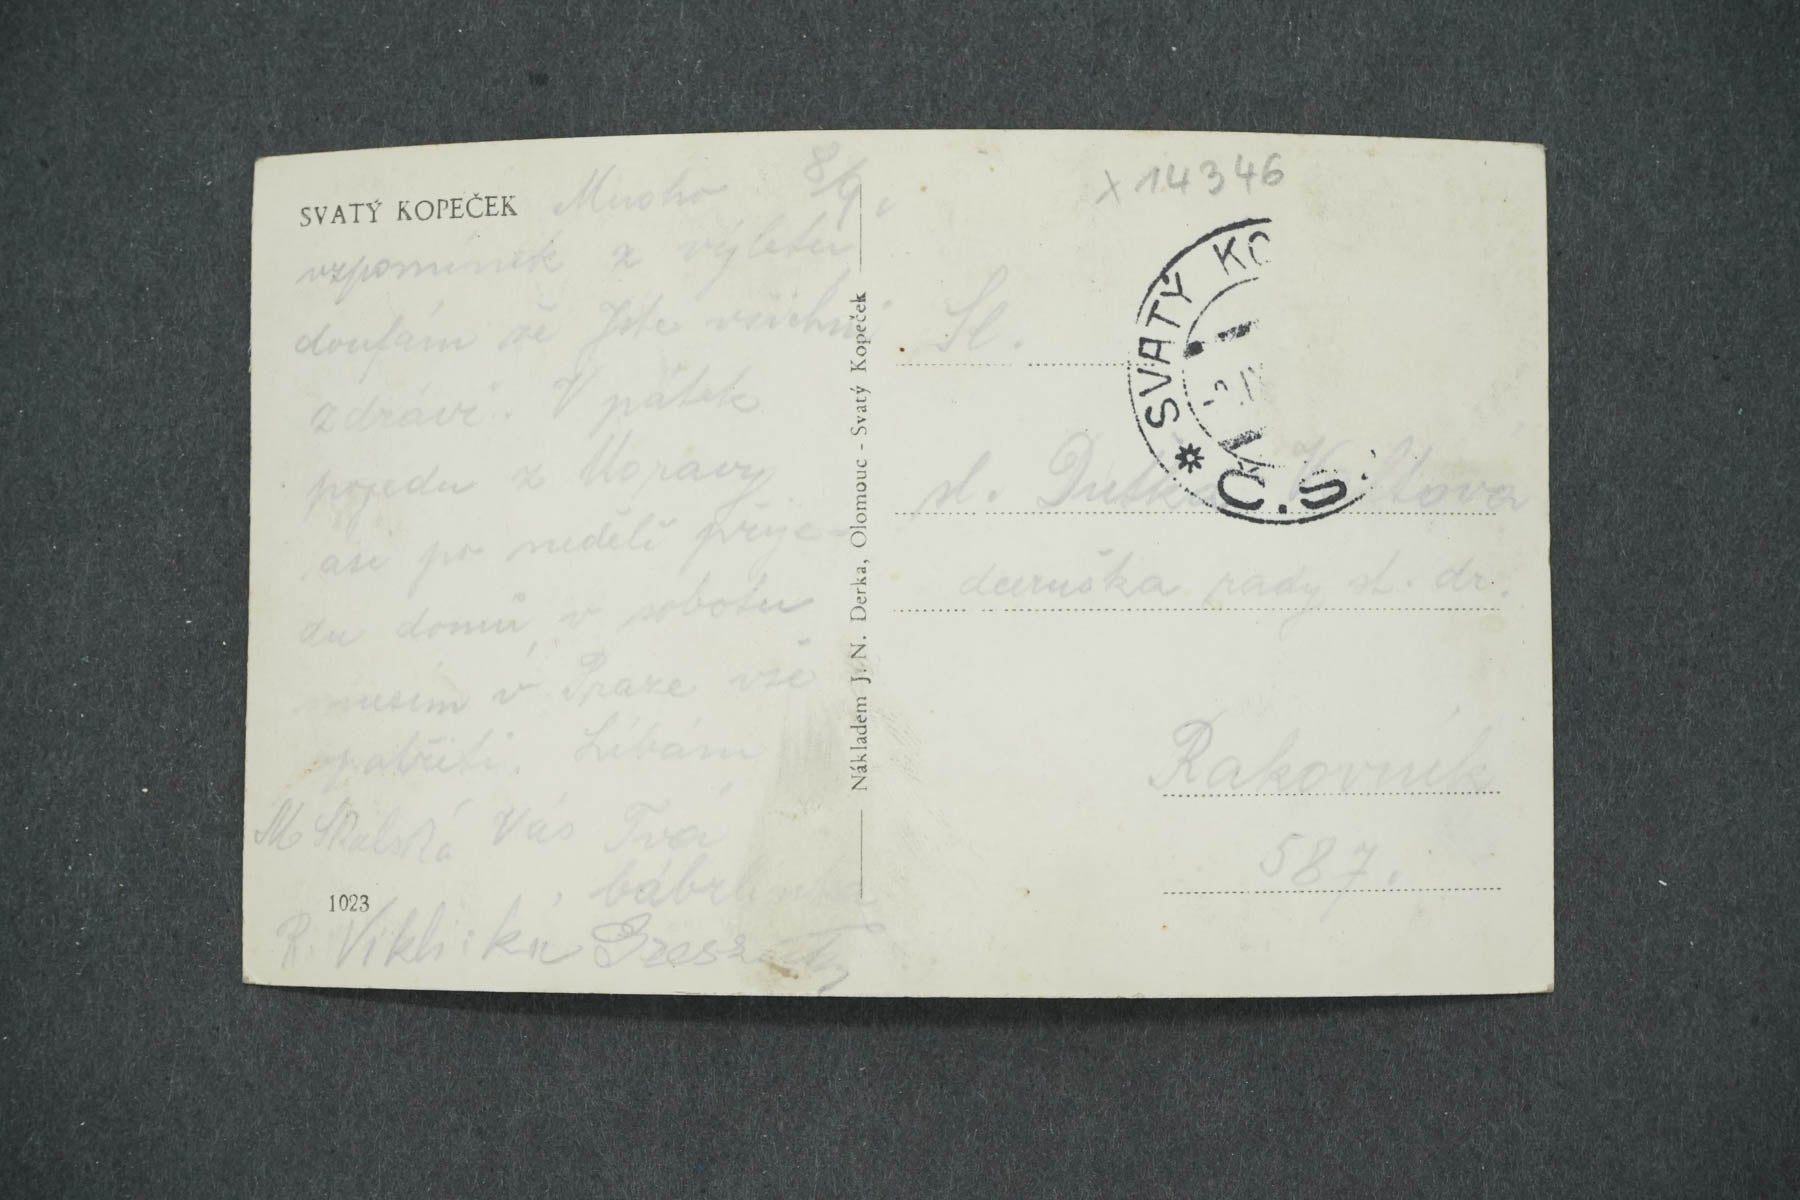 SVATÝ KOPEČEK
Mnoho 8/9.
vzpomínek z výletu
doufám že Jste všichni
zdrávi. V pátek
pojedu z Moravy
asi po neděli přije-
du domů v sobotu
musím v Praze vše
opatřiti. Líbám
Vás Tvá
M Skalská
1023
R.
Nákladem J. N. Derka, Olomouc - Svatý Kopeček
x 14346
SVATÝ KO
Č.S.
Sl.
sl.
dceruška rady st. dr.
Rakovník
587.